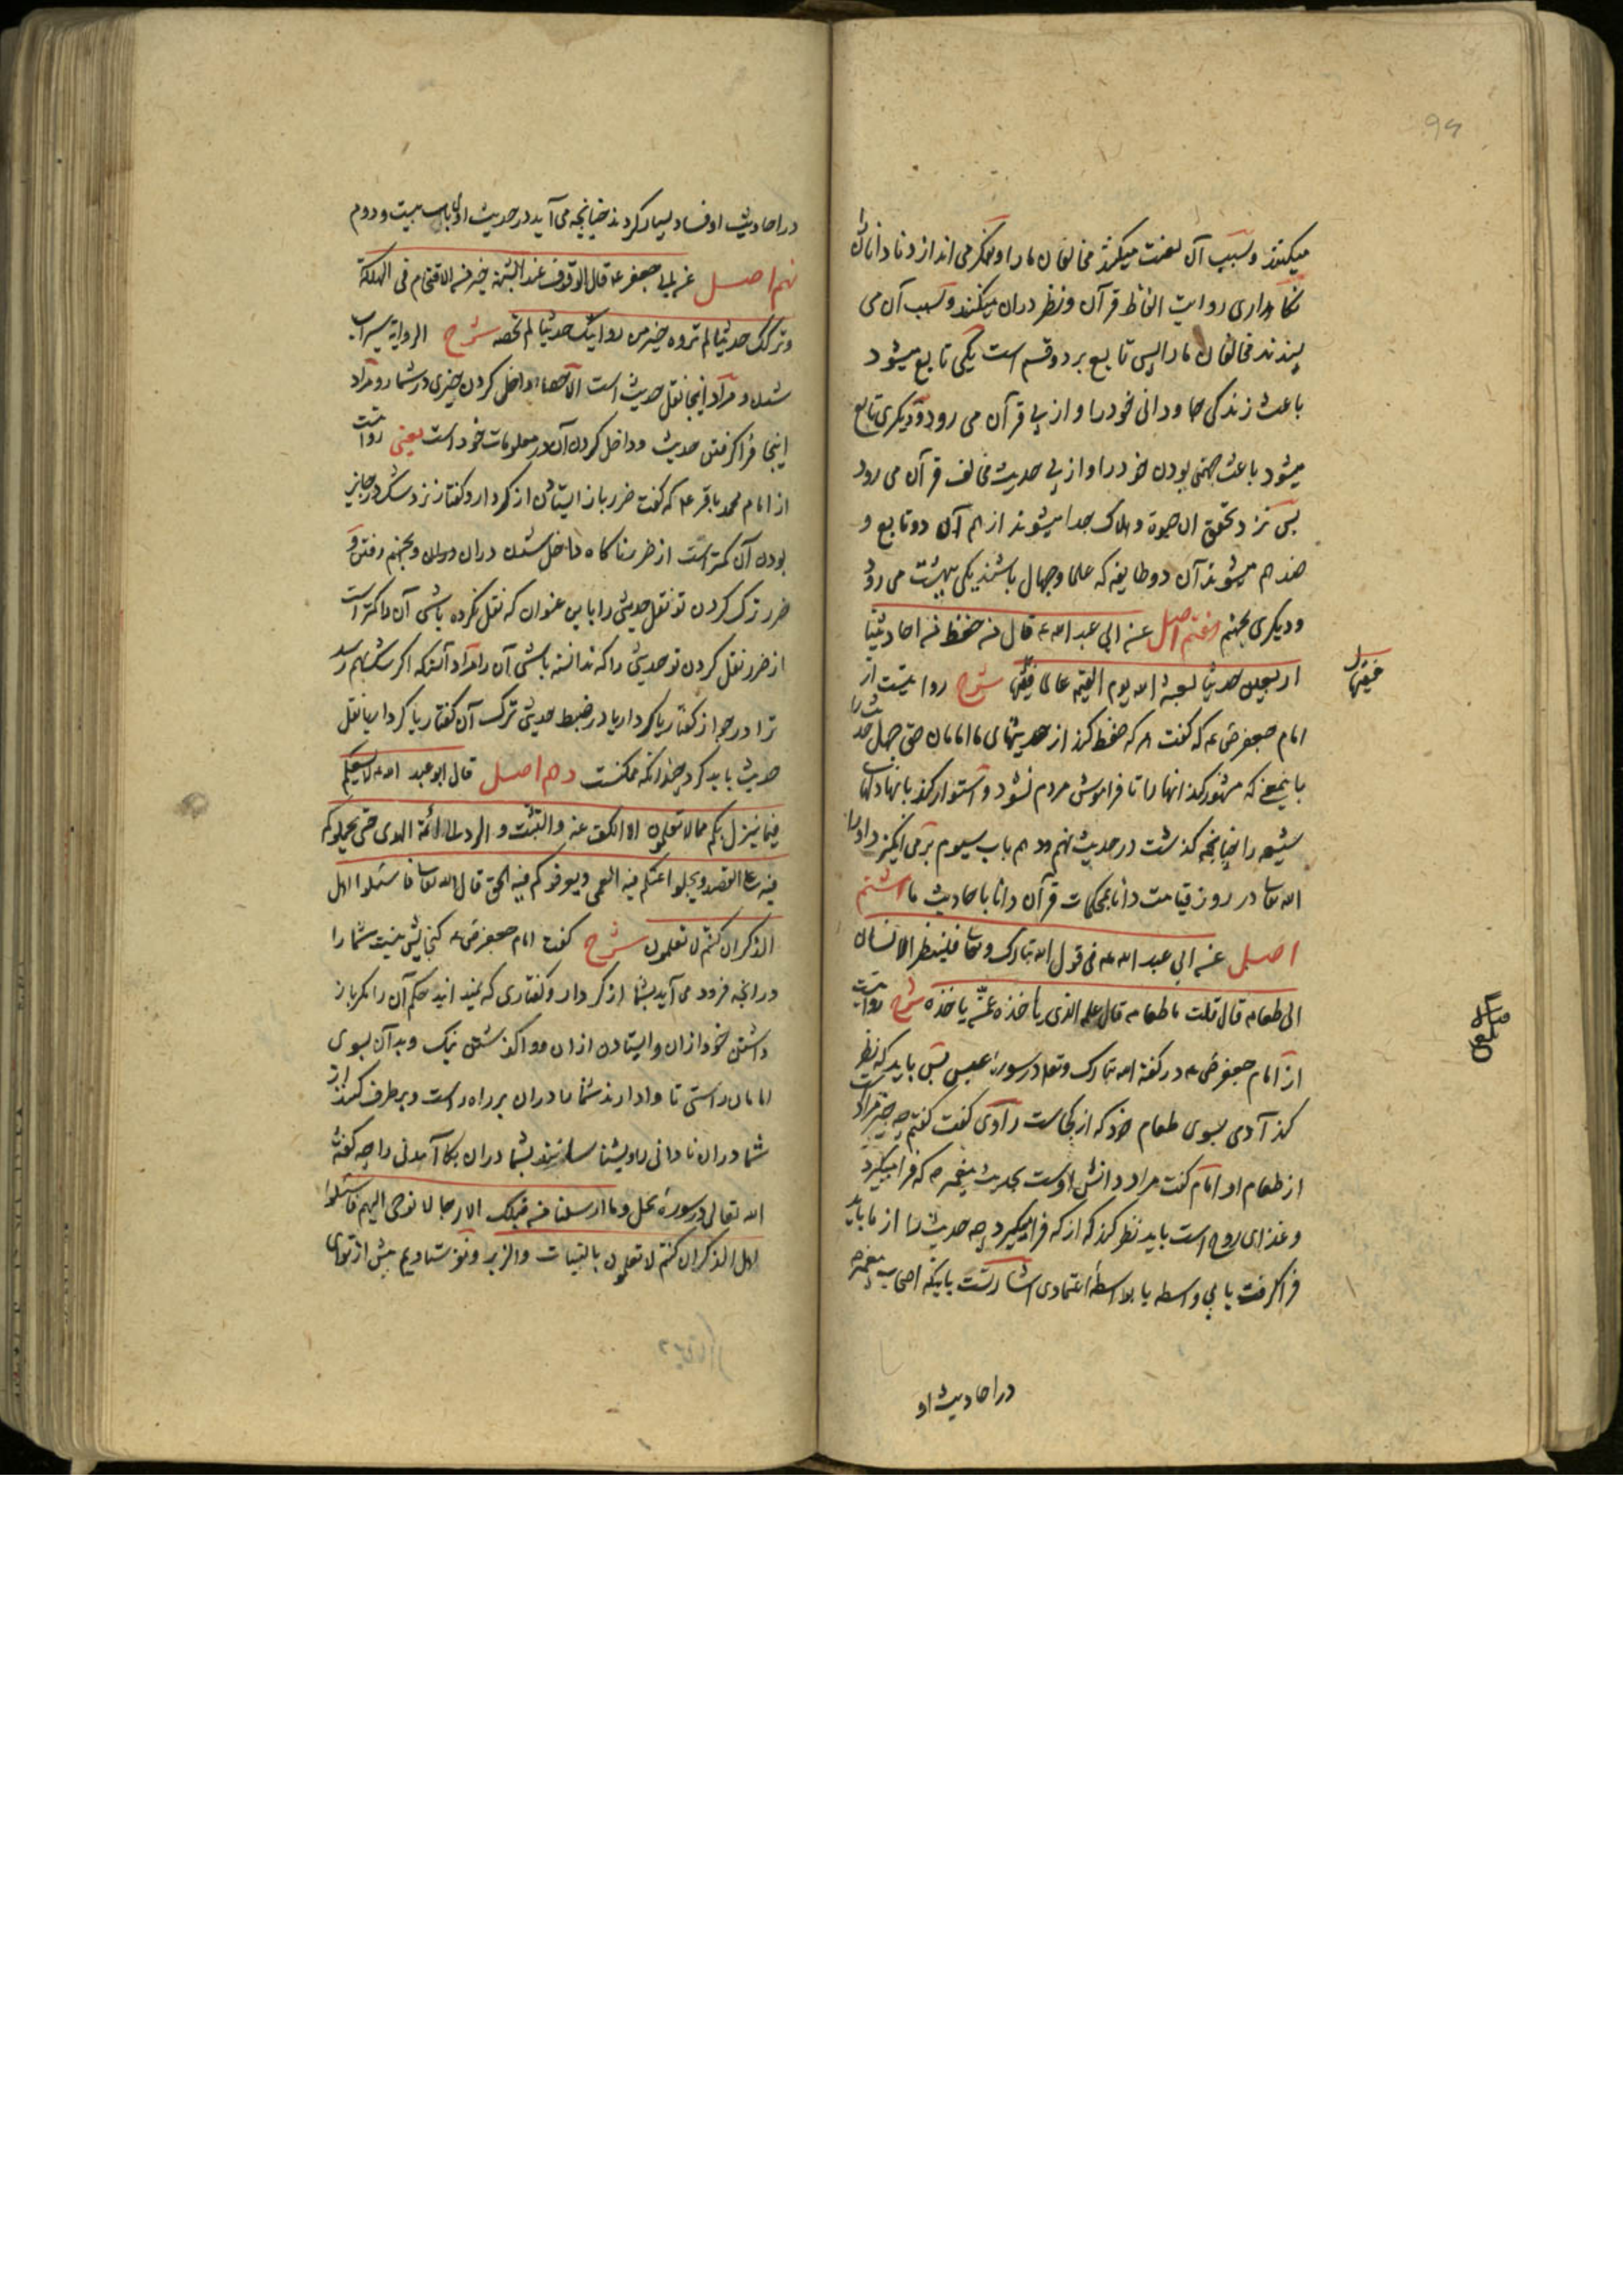 میکنند و بسبب آن لعنت میکنند مخالفان ما را و فکر می اندازد نادانان را
نگاهداری روایت الفاظ قرآن و نظر دران میکنند و بسبب آن می
پسندند مخالفان ما را پس تابع بر دو قسم است یکی تابع میشود
باعث زندگی جاودانی خود را و از پی قرآن می رود و دیگری تابع
میشود باعث جهنمی بودن خود را و از پی حدیث مخالف قرآن می رود
پس نزد تحقق ال حیوة و هلاک جدا میشوند از هم آن دو تابع و
ضد هم میشوند آن دو طایفه که علما و جهال باشند یکی ببهشت می رود
و دیگری بجهنم هفتم اصل عن ابی عبد الله ع قال من حفظ من احادیثنا
اربعین حدیثا بعثه الله یوم القیمه عالما فقیها شرح روایتست از
امام جعفر ص ع که گفت هر که حفظ کند از حدیثهای ما امامان حق چهل حدیث را
باینمعنی که مشهور کند انها را تا فراموش مردم نشود و استوار کند بانها دلهای
شیعه را چنانچه گذشت در حدیث نهم و دهم باب سیوم بر می انگیزد او را
الله تعا در روز قیامت دانا بمحکمات قرآن و دانا باحادیث ما هشتم
اصل عن ابی عبد الله ع فی قول الله تبارک و تعا فلینظر الانسان
الی طعامه قال قلت ما طعامه قال علمه الذی یأخذه عمّن یأخذه شرح روایتست
از امام جعفر ص ع در گفته الله تبارک و تعا در سوره عبس پس باید که نظر
کند آدمی بسوی طعام خود که از کجاست راوی گفت گفتم چه چیز مراد است
از طعام او امام گفت مراد دانش اوست بحدیث پیغمبر ص که فرا میگیرد
و غذای روح است باید نظر کند که از که فرا میگیرد چه حدیث را از ما باید
فرا گرفت یا بی واسطه یا بواسطۀ اعتمادی اشارتست باینکه اصحاب پیغمبر ص
در احادیث او
در احادیث او فساد بسیار کردند چنانچه می آید در حدیث اول باب بیست و دوم
نهم اصل عن ابی جعفر ع قال الوقوف عند الشبهة خیر من الاقتحام فی الهلکة
و ترکک حدیثا لم تروه خیر من روایتک حدیثا لم تحصه شرح الروایة سیراب
شدن و مراد اینجا نقل حدیث است الاحصاء داخل کردن چیزی در شمار و مراد
اینجا فرا گرفتن حدیث و داخل کردن آن در معلومات خود است یعنی روایتست
از امام محمد باقر ع که گفت ضرر باز ایستادن از کردار و گفتار نزد شک در جایز
بودن آن کمتر است از ضرر ناگاه داخل شدن دران و بجهنم رفتن و
ضرر ترک کردن تو نقل حدیثی را باین عنوان که نقل نکرده باشی آن را کمتر است
از ضرر نقل کردن تو حدیثی را که ندانسته باشی آن را مراد آنستکه اگر شک بهم رسد
ترا در جواز گفتار یا کردار یا در ضبط حدیثی ترک آن گفتار یا کردار یا نقل
حدیث باید کرد چندانکه ممکنست دهم اصل قال ابو عبد الله ع لا یسعکم
فیما ینزل بکم مما لا تعلمون الا الکف عنه و التثبت و الرد الی ائمة الهدی حتی یحملوکم
فیه علی القصد و یجلوا عنکم فیه العمی و یعرفوکم فیه الحق قال الله تعا فاسئلوا اهل
الذکر ان کنتم لا تعلمون شرح گفت امام جعفر ص ع گنجایش نیست شما را
در انچه فرود می آید بشما از کردار و گفتاری که نمیدانید حکم آن را مگر باز
داشتن خود ازان و ایستادن ازان و واگذاشتن نیک و بد آن بسوی
امامان راستی تا وادارند شما را دران بر راه راست و بر طرف کنند از
شما دران نادانی را و بشناسانند بشما دران بکار آمدنی را چه گفته
الله تعالی در سورۀ نحل و ما ارسلنا من قبلک الا رجالا نوحی الیهم فاسئلوا
اهل الذکر ان کنتم لا تعلمون بالبینات و الزبر و نفرستادیم پیش از تو